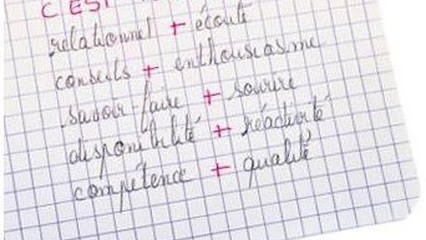 C'EST
relationnel + écoute
conseils + enthousiasme
savoir-faire + sourire
disponibilité + réactivité
compétence + qualité